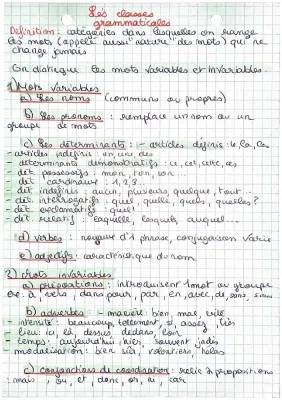 Les classes
grammaticales
Définition : catégories dans lesquelles on range
les mots (appelé aussi "nature" des mots) qui ne
change jamais
On distingue les mots variables et invariables
1) Mots variables
a) Les noms (communs ou propres)
b) Les pronoms : remplace un nom ou un
groupe de mots
c) Les déterminants : - articles définis : le, la, les
- articles indéfinis : un, une, des
- déterminants démonstratifs : ce, cet, cette, ces
- dét. possessifs : mon, ton, son...
- dét. cardinaux : 1, 2, 3...
- dét indéfinis : aucun, plusieurs, quelque, tout...
- dét interrogatifs : quel, quelle, quels, quelles ?
- dét exclamatifs : quel !
- dét. relatif : laquelle, lesquels, auquel...
d) verbes : noyau d'1 phrase, conjugaison varie
e) adjectifs : caractéristique du nom
2) Mots invariables
a) prépositions : introduisent 1 mot ou groupe
ex : à, vers, dans, pour, par, en, avec, de, sans, sous
b) adverbes - manière : bien, mal, vite
- intensité : beaucoup, tellement, si, assez, très
- lieu : ici, là, dessus, dedans, loin
- temps : aujourd'hui, hier, souvent, jadis
- modalisation : bien sûr, volontiers, hélas
c) conjonctions de coordination : relie 2 propositions
: mais, ou, et, donc, or, ni, car